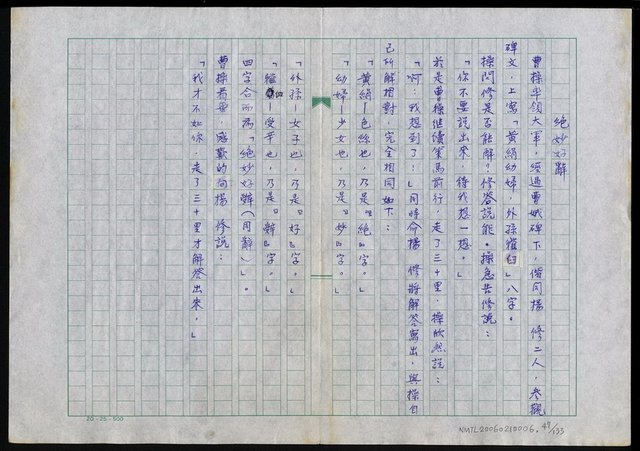 絕妙好辭
曹操率領大軍，經過曹娥碑下，偕同楊　修二人，參觀
碑文，上寫「黃絹幼婦，外孫虀臼」八字。
操問修是否能解？修答說能。操急告修說：
「你不要說出來，待我想一想。」
於是曹操繼續策馬前行，走了三十里，操欣然說：
「啊！我想到了！」同時命楊　修將解答寫出，與操自
己所解相對，完全相同如下：
「黃絹—色絲也，乃是『絕』字。」
「幼婦—少女也，乃是『妙』字。」
「外孫—女子也，乃是『好』字。」
「虀臼—受辛也，乃是『辭』字。」
四字合而為「絕妙好辭（同辭）」。
曹操看畢，感歎的向楊　修說：
「我才不如你，走了三十里才解答出來，」
20×25=500
NMTL20060210006. 49/133